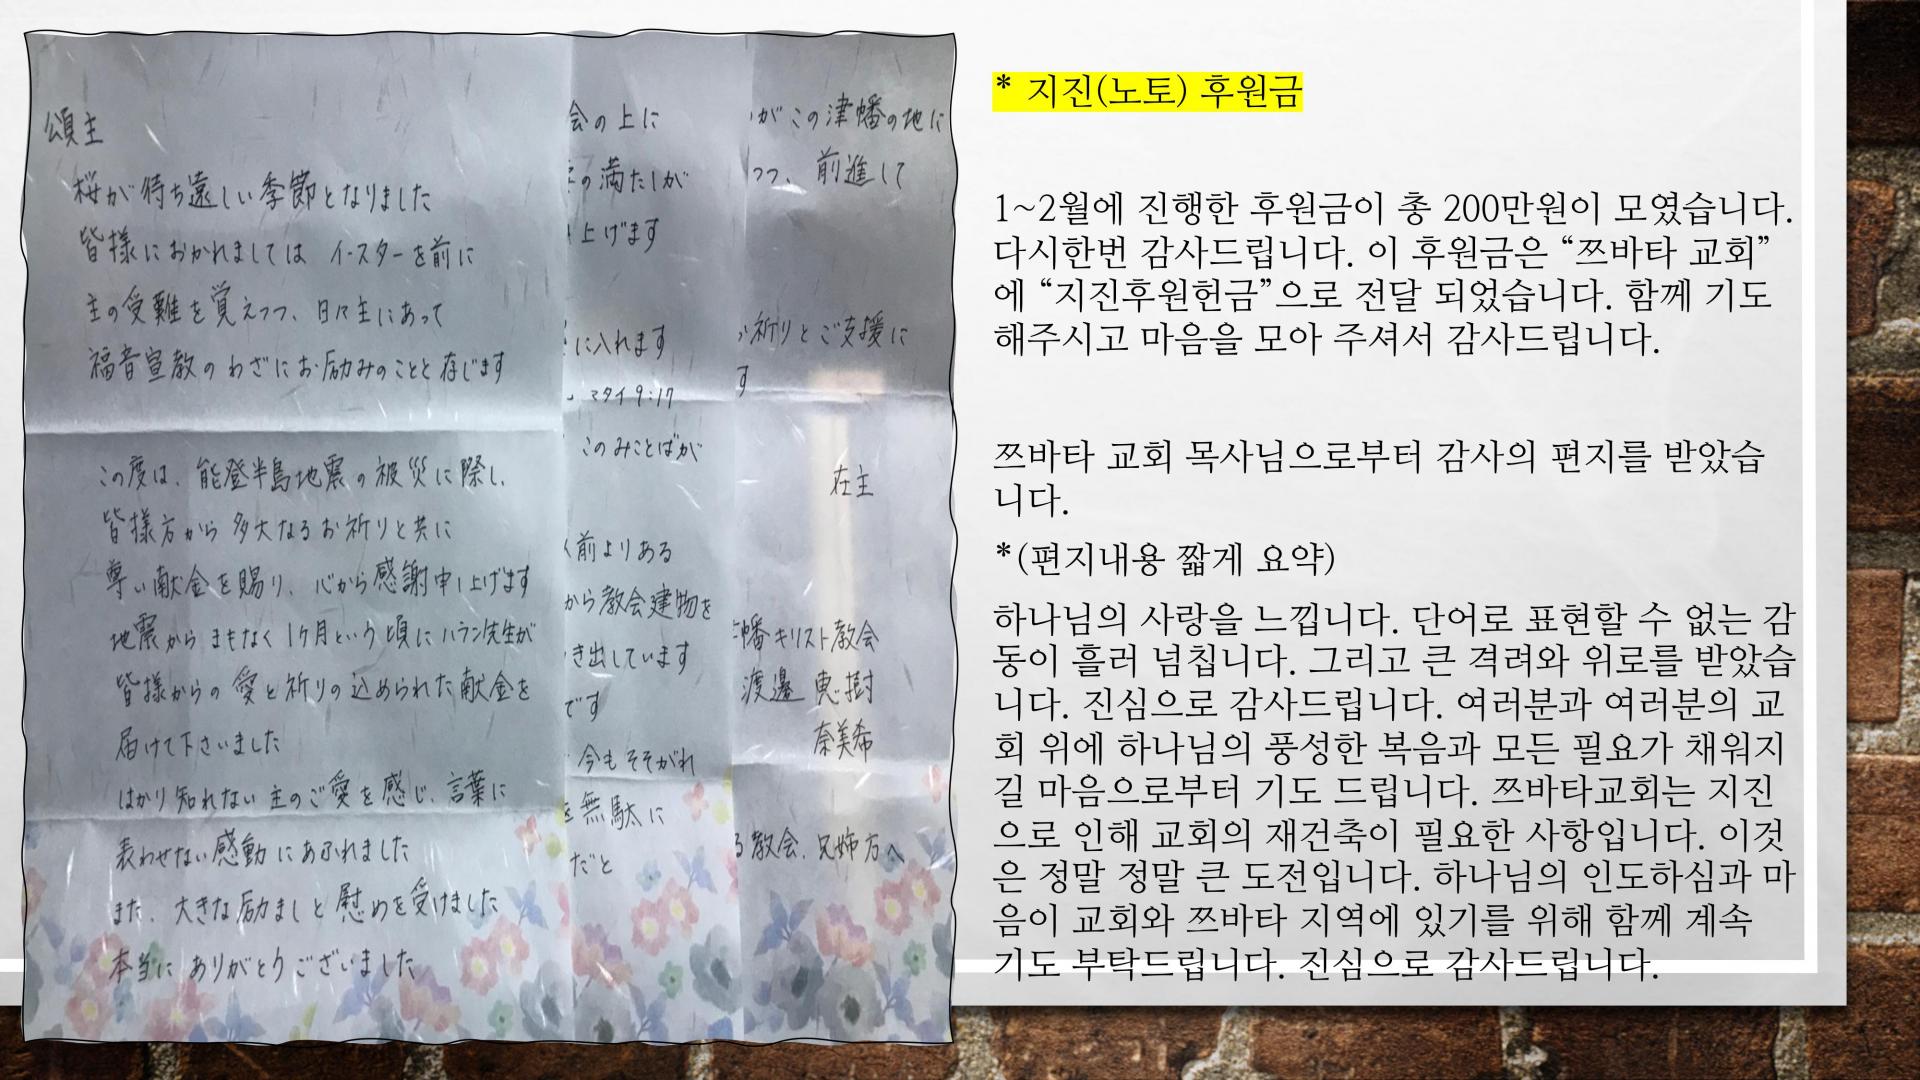 頌主
桜が待ち遠しい季節となりました
皆様におかれましては イースターを前に
主の受難を覚えつつ、日々主にあって
福音宣教のわざにお励みのことと存じます
この度は、能登半島地震の被災に際し、
皆様方から多大なるお祈りと共に
尊い献金を賜り、心から感謝申し上げます
地震からまもなく1ヶ月という頃にハラン先生が
皆様からの愛と祈りの込められた献金を
届けて下さいました
はかり知れない主のご愛を感じ、言葉に
表わせない感動にあふれました
また、大きな励ましと慰めを受けました
本当にありがとうございました
会の上に
の満たしが
上げます
に入れます
マタイ9:17
このみことばが
前よりある
から教会建物を
き出しています
です
今もそそがれ
を無駄に
だと
がこの津幡の地に
つつ、前進して
祈りとご支援に
す
在主
幡キリスト教会
渡邊 恵樹
奈美希
る教会、兄姉方へ
* 지진(노토) 후원금
1~2월에 진행한 후원금이 총 200만원이 모였습니다.
다시한번 감사드립니다. 이 후원금은 “쯔바타 교회”
에 “지진후원헌금”으로 전달 되었습니다. 함께 기도
해주시고 마음을 모아 주셔서 감사드립니다.
쯔바타 교회 목사님으로부터 감사의 편지를 받았습
니다.
*(편지내용 짧게 요약)
하나님의 사랑을 느낍니다. 단어로 표현할 수 없는 감
동이 흘러 넘칩니다. 그리고 큰 격려와 위로를 받았습
니다. 진심으로 감사드립니다. 여러분과 여러분의 교
회 위에 하나님의 풍성한 복음과 모든 필요가 채워지
길 마음으로부터 기도 드립니다. 쯔바타교회는 지진
으로 인해 교회의 재건축이 필요한 사항입니다. 이것
은 정말 정말 큰 도전입니다. 하나님의 인도하심과 마
음이 교회와 쯔바타 지역에 있기를 위해 함께 계속
기도 부탁드립니다. 진심으로 감사드립니다.